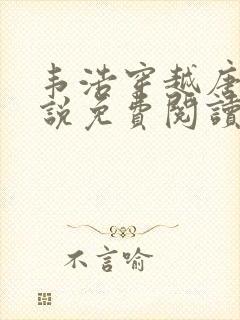 韦浩穿越唐
說免費閱讀
不言喻